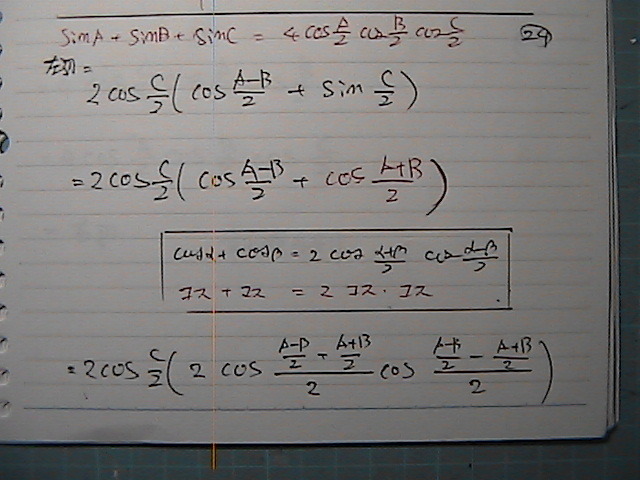 sinA + sinB + sinC = 4 cos A/2 cos B/2 cos C/2 24
左辺 =
2 cos C/2 ( cos (A-B)/2 + sin C/2 )
= 2 cos C/2 ( cos (A-B)/2 + cos (A+B)/2 )
cosα + cosβ = 2 cos (α+β)/2 cos (α-β)/2
コス + コス = 2 コス・コス
= 2 cos C/2 ( 2 cos ((A-B)/2 + (A+B)/2)/2 cos ((A-B)/2 - (A+B)/2)/2 )